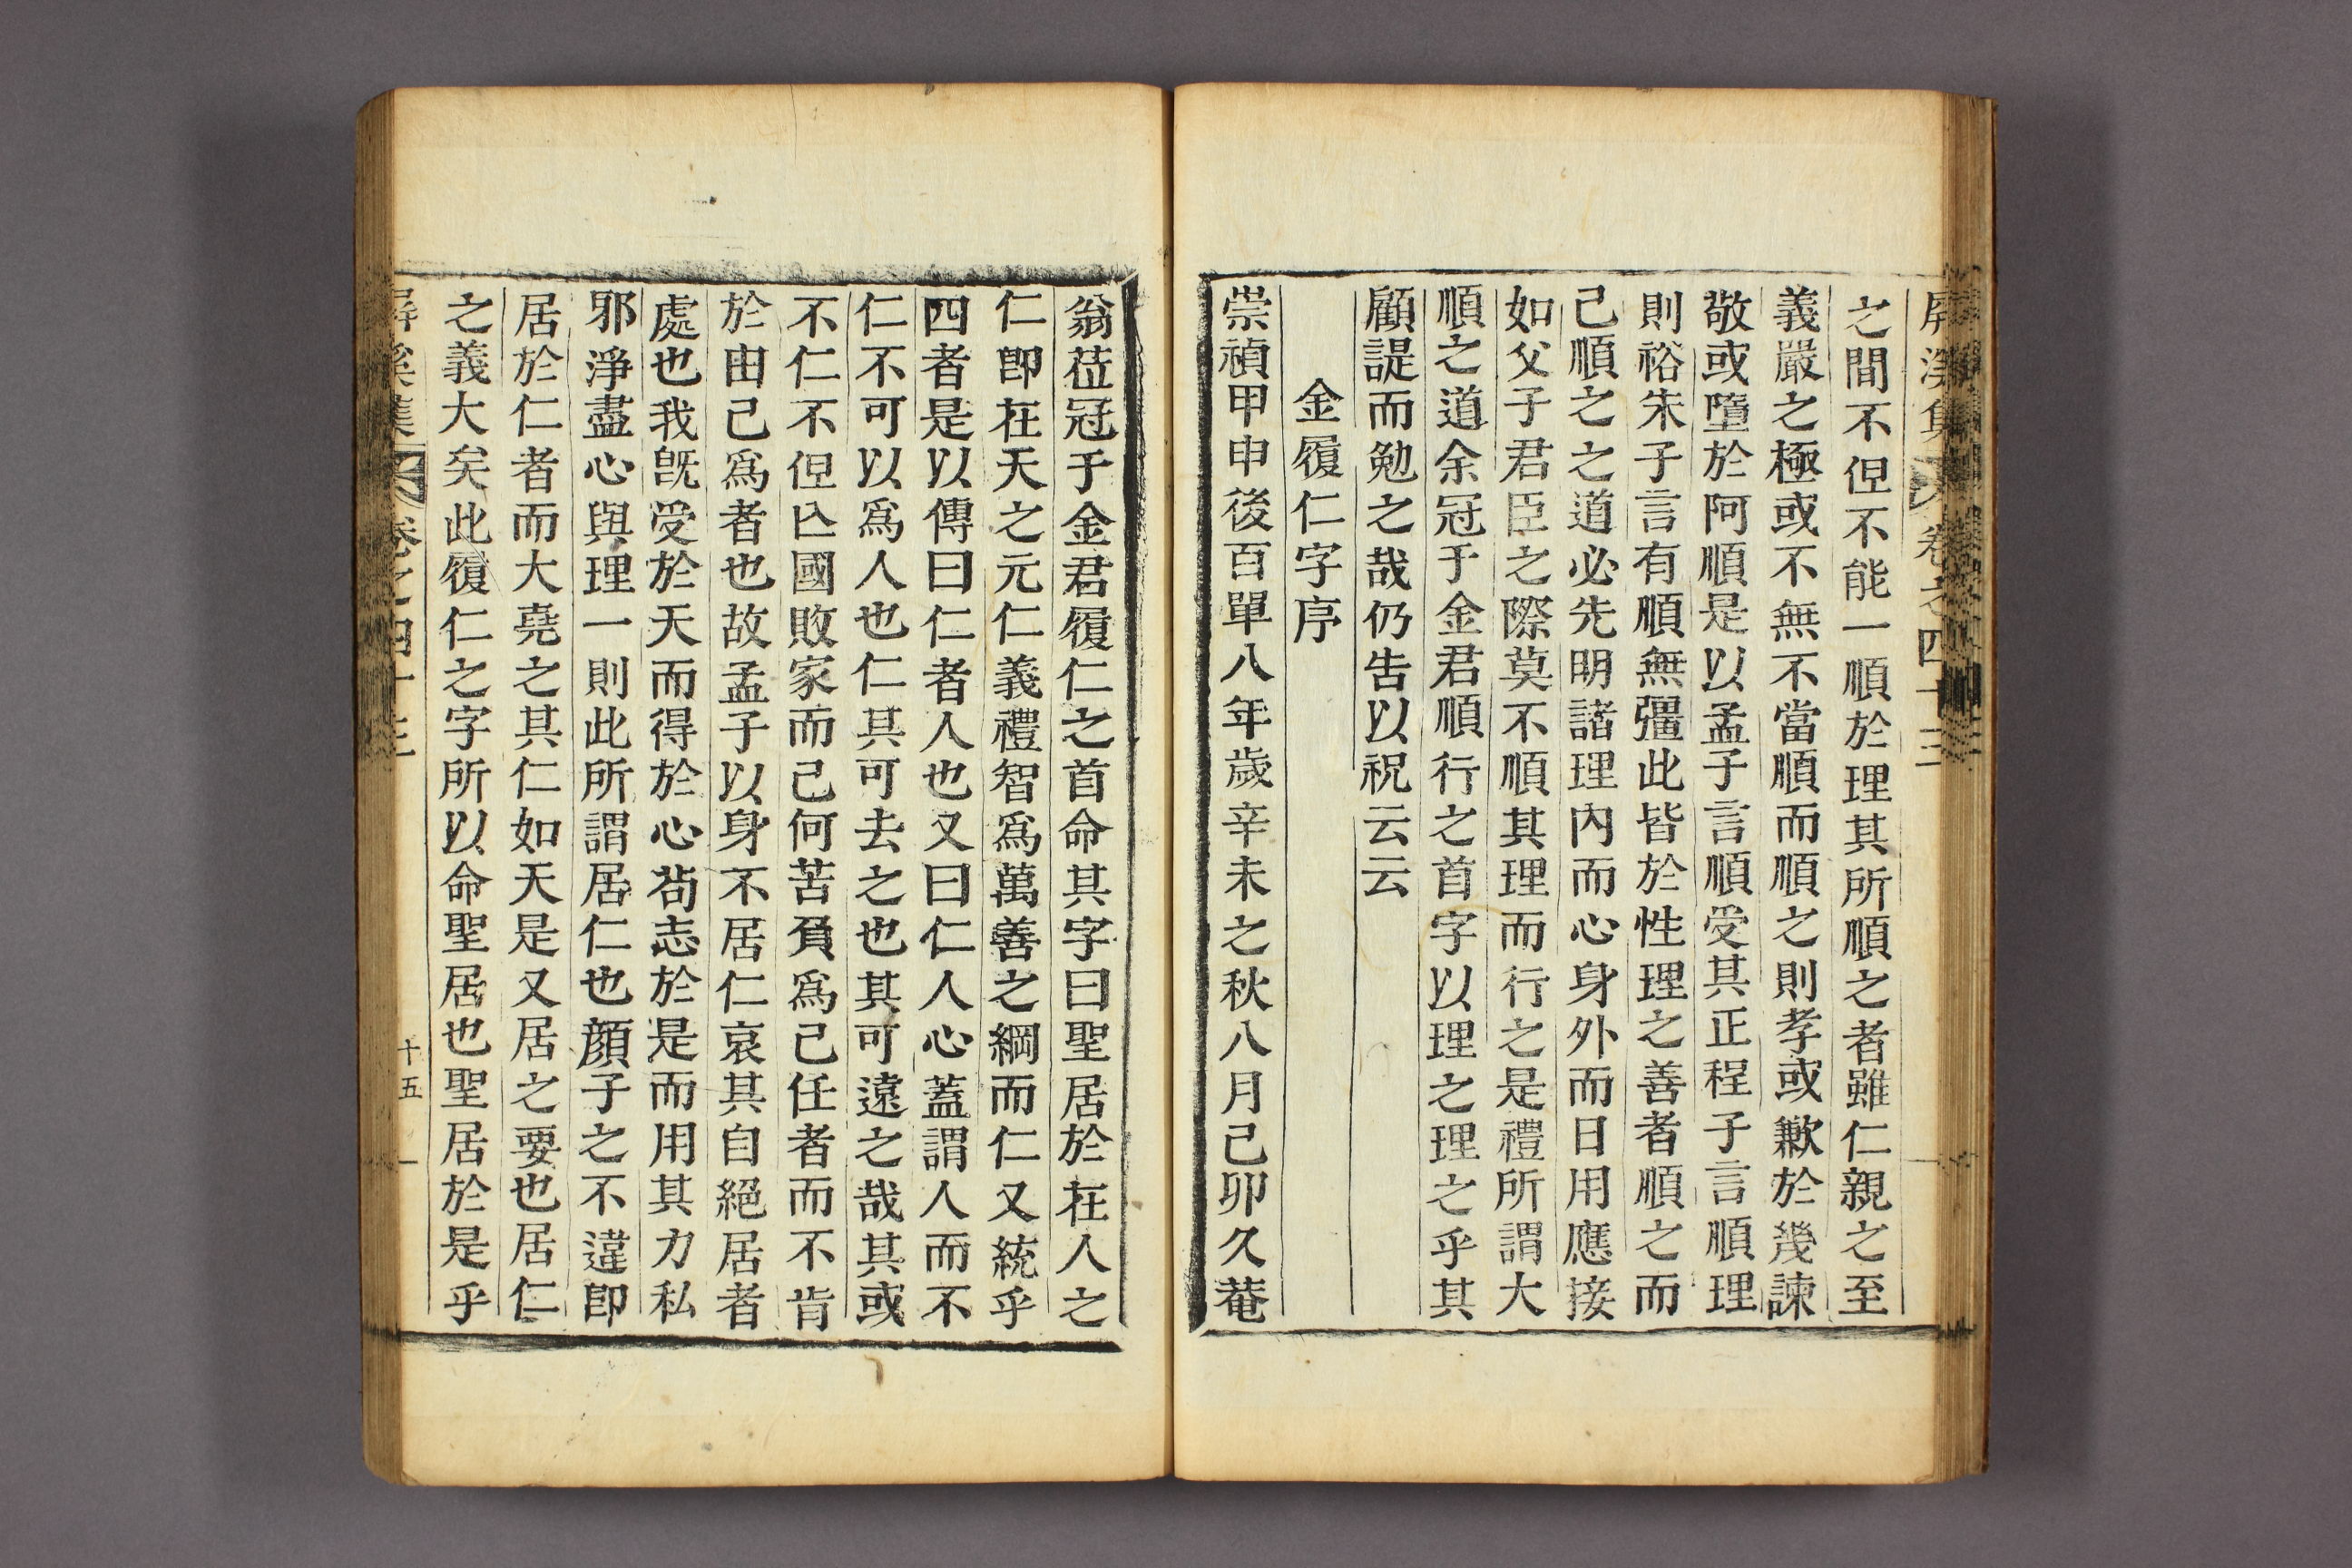 屛溪集 卷之四十三
之間不但不能一順於理其所順之者雖仁親之至
義嚴之極或不無不當順而順之則孝或歉於幾諫
敬或墮於阿順是以孟子言順受其正程子言順理
則裕朱子言有順無彊此皆於性理之善者順之而
己順之之道必先明諸理內而心身外而日用應接
如父子君臣之際莫不順其理而行之是禮所謂大
順之道余冠于金君順行之首字以理之理之乎其
顧諟而勉之哉仍告以祝云云
金履仁字序
崇禎甲申後百單八年歲辛未之秋八月己卯久菴
翁莅冠于金君履仁之首命其字曰聖居於在人之
仁卽在天之元仁義禮智爲萬善之綱而仁又統乎
四者是以傳曰仁者人也又曰仁人心蓋謂人而不
仁不可以爲人也仁其可去之也其可遠之哉其或
不仁不但亾國敗家而己何苦負爲己任者而不肯
於由己爲者也故孟子以身不居仁哀其自絕居者
處也我旣受於天而得於心茍志於是而用其力私
邪淨盡心與理一則此所謂居仁也顔子之不違卽
居於仁者而大堯之其仁如天是又居之要也居仁
之義大矣此履仁之字所以命聖居也聖居於是乎
屛溪集 卷之四十三 十五